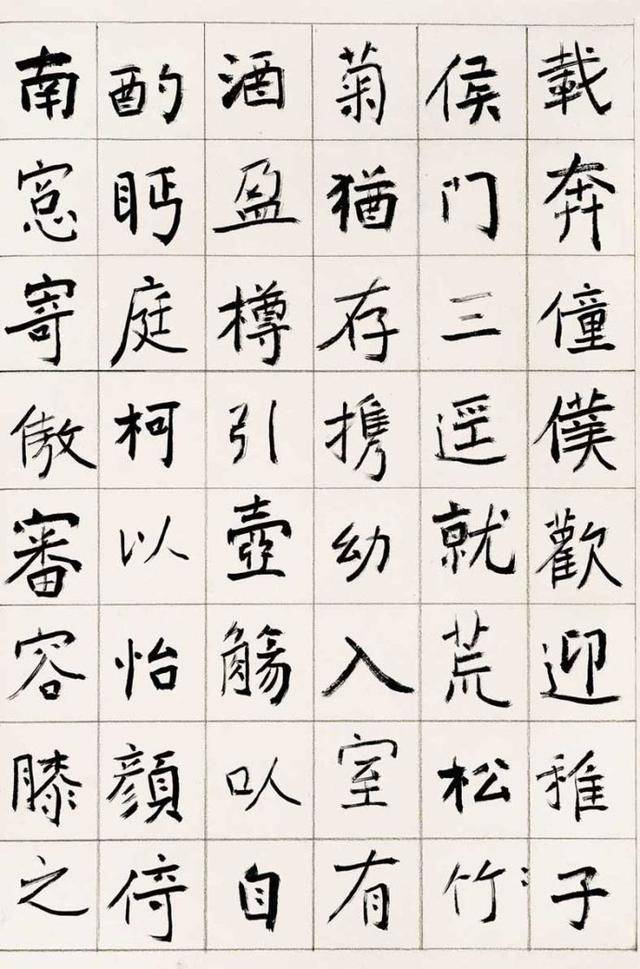 載奔僮僕歡迎稚子
侯门三逕就荒松竹
菊猶存携幼入室有
酒盈樽引壺觴㕥自
酌眄庭柯以怡顔倚
南窓寄傲審容膝之